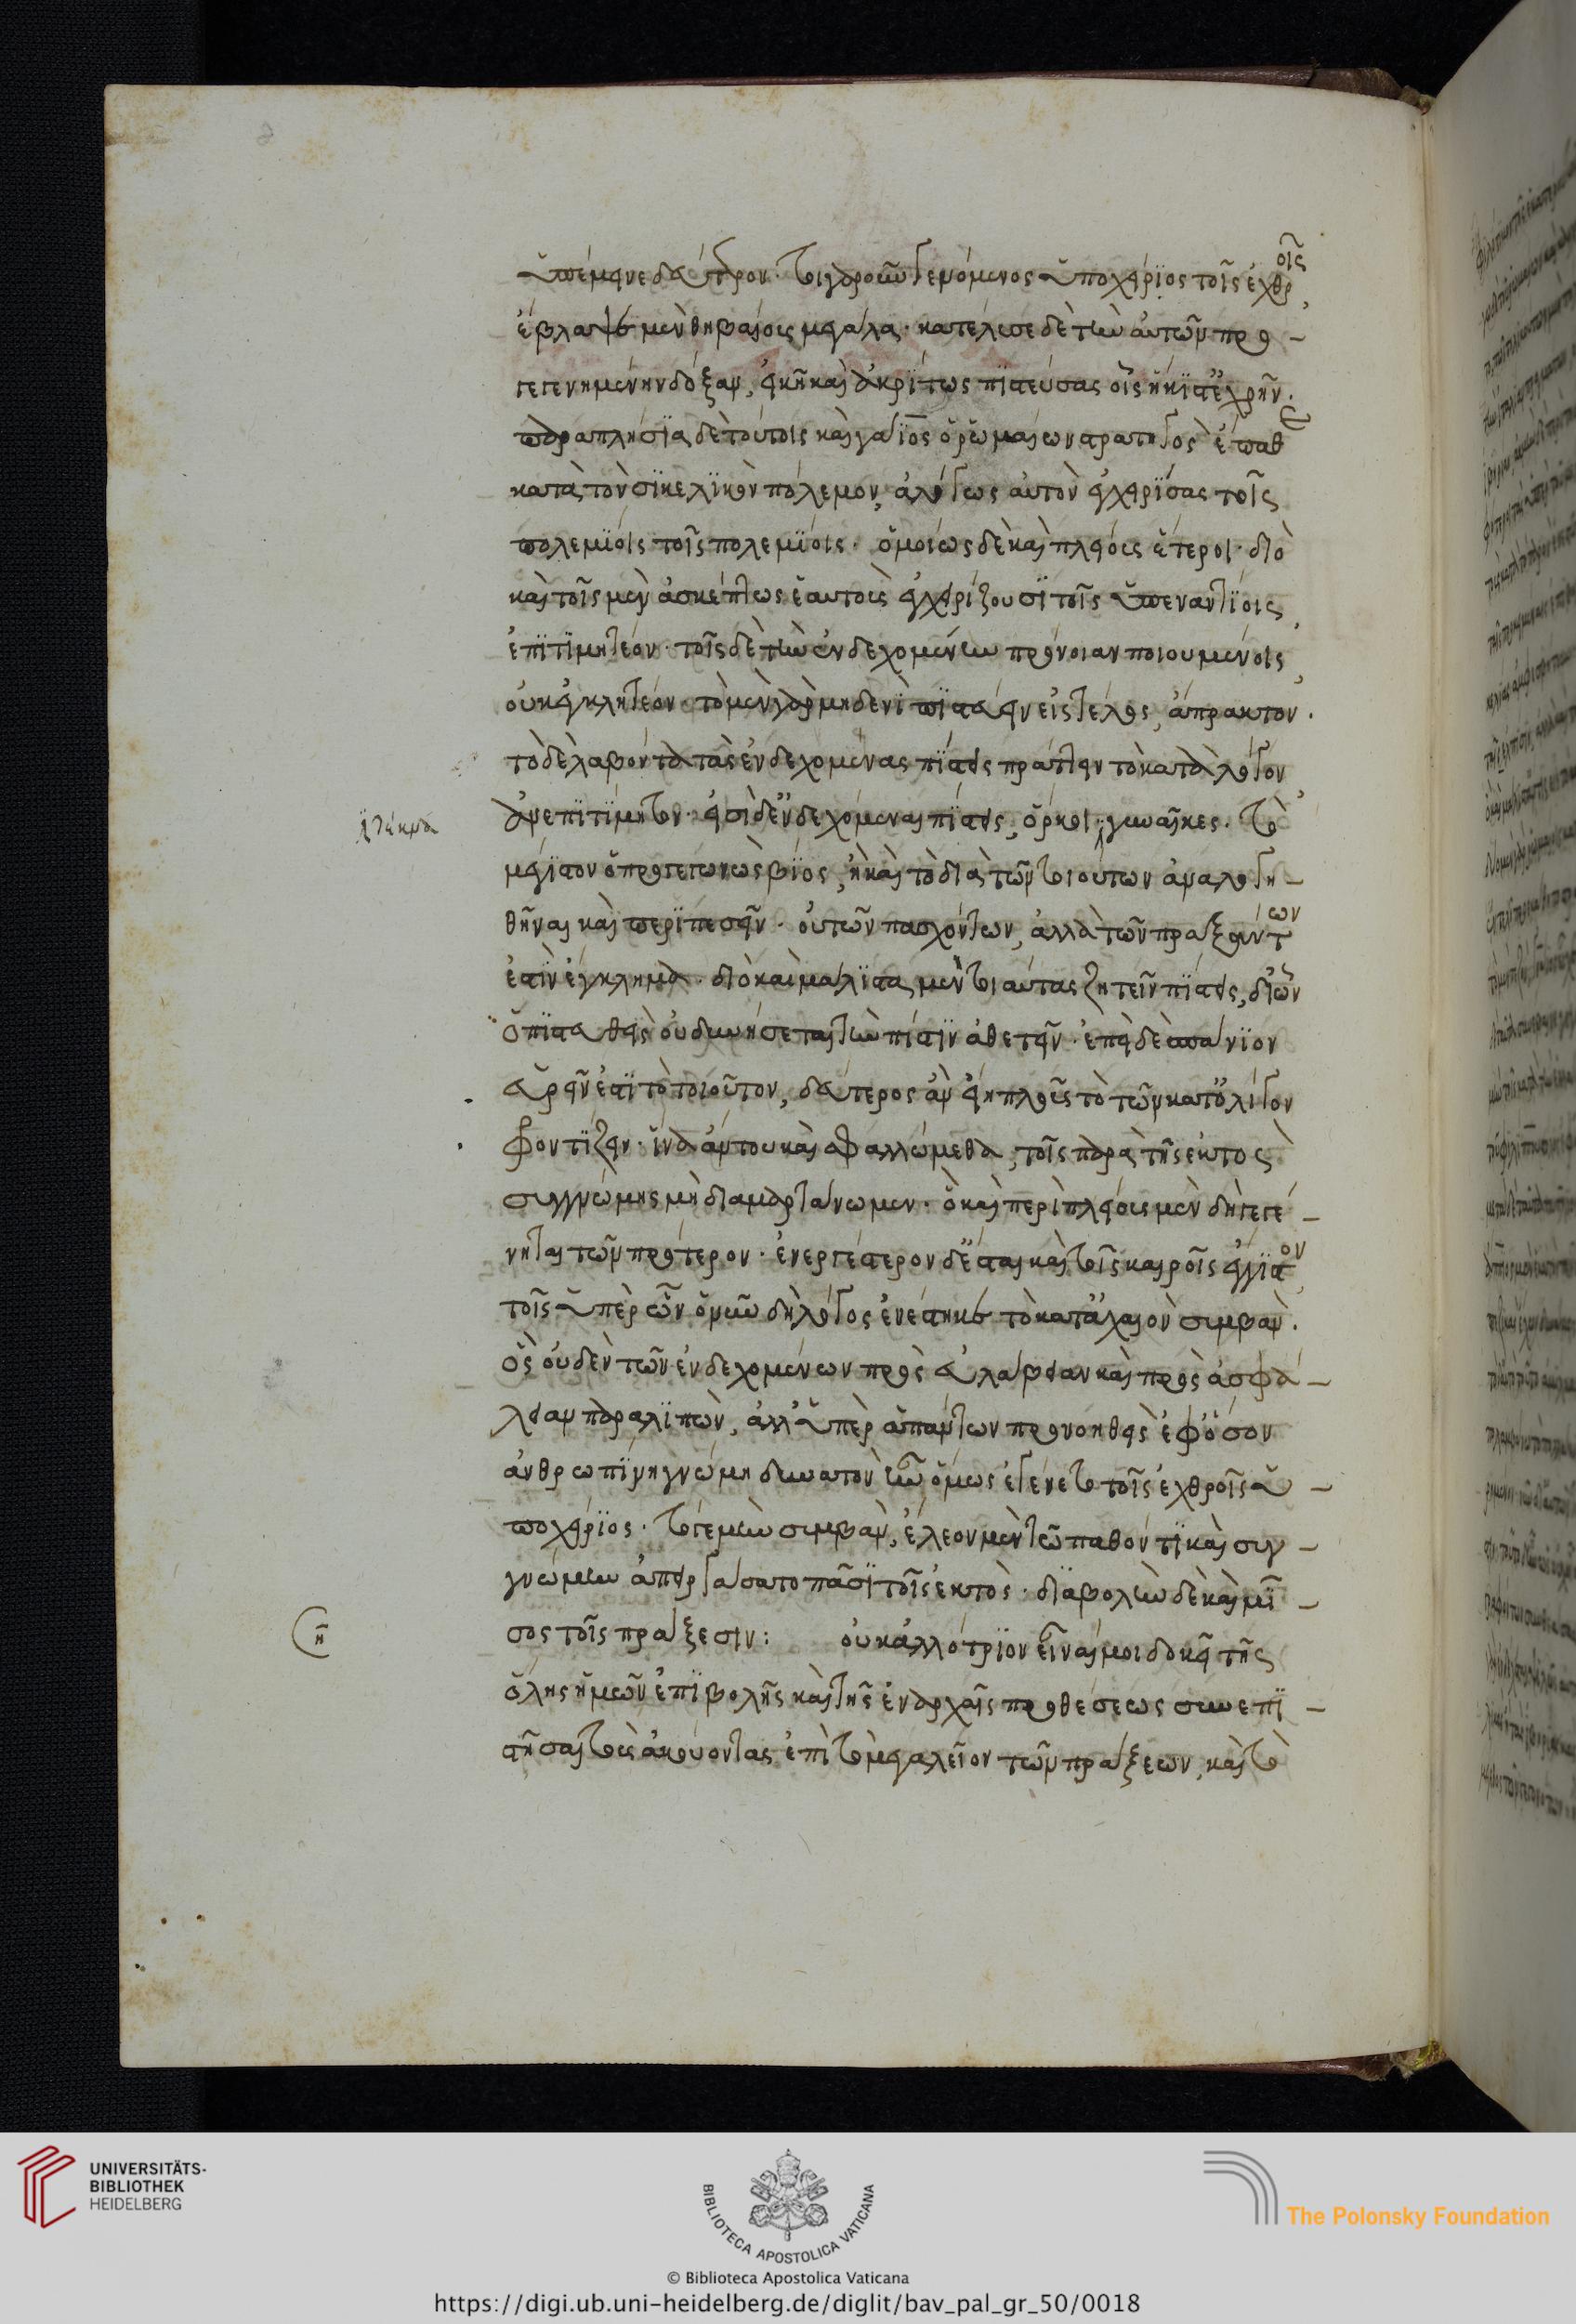 ὑπέμεινε δεύτερον· τοιγαροῦν γενόμενος ὑποχείριος τοῖς ἐχθροῖς,
ἔβλαψε μὲν θηβαίους μεγάλα· κατέλυσε δὲ τὴν αὐτῶν προ-
γεγενημένην δόξαν, εἰκῆ καὶ ἀκρίτως πιστεύσας οἷς ἥκιστ' ἐχρῆν.
παραπλήσια δὲ τούτοις καὶ γάϊος ὁ ῥωμαίων στρατηγὸς ἔπαθε
κατὰ τὸν σικελικὸν πόλεμον, ἀλόγως αὐτὸν ἐγχειρίσας τοῖς
πολεμίοις τοῖς πολεμίοις· ὁμοίως δὲ καὶ πλείους ἕτεροι· διὸ
καὶ τοῖς μὲν ἀσκέπτως ἑαυτοὺς ἐγχειρίζουσι τοῖς ὑπεναντίοις,
ἐπιτιμητέον· τοῖς δὲ τὴν ἐνδεχομένην πρόνοιαν ποιουμένοις,
οὐκ ἐγκλητέον· τὸ μὲν γὰρ μηδενὶ πιστεύειν εἰς τέλος, ἄπρακτον·
τὸ δὲ λαβόντα τὰς ἐνδεχομένας πίστεις πράττειν τὸ κατὰ λόγον
ἀνεπιτίμητον· εἰσὶ δ' ἐνδεχόμεναι πίστεις, ὅρκοι, γυναῖκες· τὸ
τέκνα
μέγιστον ὁ προγεγονὼς βίος, ἢ καὶ τὸ διὰ τῶν τοιούτων ἀναλογη-
θῆναι καὶ περιπεσεῖν· οὐ τῶν πασχόντων, ἀλλὰ τῶν πραξάντων
ἐστὶν ἔγκλημα· διὸ καὶ μάλιστα μὲν τοιαύτας ζητεῖν πίστεις, δι' ὧν
ὁ πιστευθεὶς οὐ δυνήσεται τὴν πίστιν ἀθετεῖν· ἐπεὶ δὲ σπάνιον
εὑρεῖν ἐστὶ τὸ τοιοῦτον, δεύτερος ἂν εἴη πλοῦς τὸ τῶν κατὰ λόγον
φροντίζειν· ἵνα ἄν του καὶ σφαλλώμεθα, τοῖς παρὰ τῆς ἐκτὸς
συγγνώμης μὴ διαμαρτάνωμεν· ὃ καὶ περὶ πλείους μὲν δὴ γεγέ-
νηται τῶν πρότερον· ἐνεργέστερον δ' ἔσται καὶ τοῖς καιροῖς ἔγγιστον
τοῖς ὑπὲρ ὧν ὁ νῦν δὴ λόγος ἐνέστηκε τὸ κατ' ἀχαιὸν συμβάν·
ὃς οὐδὲν τῶν ἐνδεχομένων πρὸς εὐλάβειαν καὶ πρὸς ἀσφά-
λειαν παραλιπών, ἀλλ' ὑπὲρ ἁπάντων προνοηθεὶς ἐφ' ὅσον
ἀνθρωπίνῃ γνώμῃ δυνατὸν ἦν ὅμως ἐγένετο τοῖς ἐχθροῖς ὑ-
ποχείριος· τό γε μὴν συμβὰν, ἔλεον μὲν τῷ παθόντι καὶ συγ-
γνώμην ἀπειργάσατο πᾶσι τοῖς ἐκτός· διαβολὴν δὲ καὶ μῖ-
η
σος τοῖς πράξεσιν: οὐκ ἀλλότριον εἶναί μοι δοκεῖ τῆς
ὅλης ἡμῶν ἐπιβολῆς καὶ τῆς ἐν ἀρχαῖς προθέσεως συνεπι-
στῆσαι τοὺς ἀκούοντας ἐπὶ τὸ μεγαλεῖον τῶν πράξεων, καὶ τὸ
UNIVERSITÄTS-
BIBLIOTHEK
HEIDELBERG
BIBLIOTECA APOSTOLICA VATICANA
The Polonsky Foundation
© Biblioteca Apostolica Vaticana
https://digi.ub.uni-heidelberg.de/diglit/bav_pal_gr_50/0018